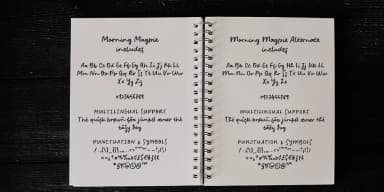 Morning Magpie
includes
Aa Bb Cc Dd Ee Ff Gg Hh Ii Jj Kk Ll
Mm Nn Oo Pp Qq Rr Ss Tt Uu Vv Ww
Xx Yy Zz
0123456789
MULTILINGUAL SUPPORT
The quick brown fox jumped over the
lazy dog
PUNCTUATION & SYMBOLS
Morning Magpie Alternate
includes
Aa Bb Cc Dd Ee Ff Gg Hh Ii Jj Kk Ll
Mm Nn Oo Pp Qq Rr Ss Tt Uu Vv Ww
Xx Yy Zz
0123456789
MULTILINGUAL SUPPORT
The quick brown fox jumped over the
lazy dog
PUNCTUATION & SYMBOLS